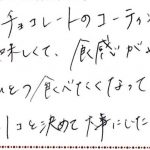 チョコレートのコーティン
味しくて、食感が
ひとつ食べたくなって
1コと決めて大事にした